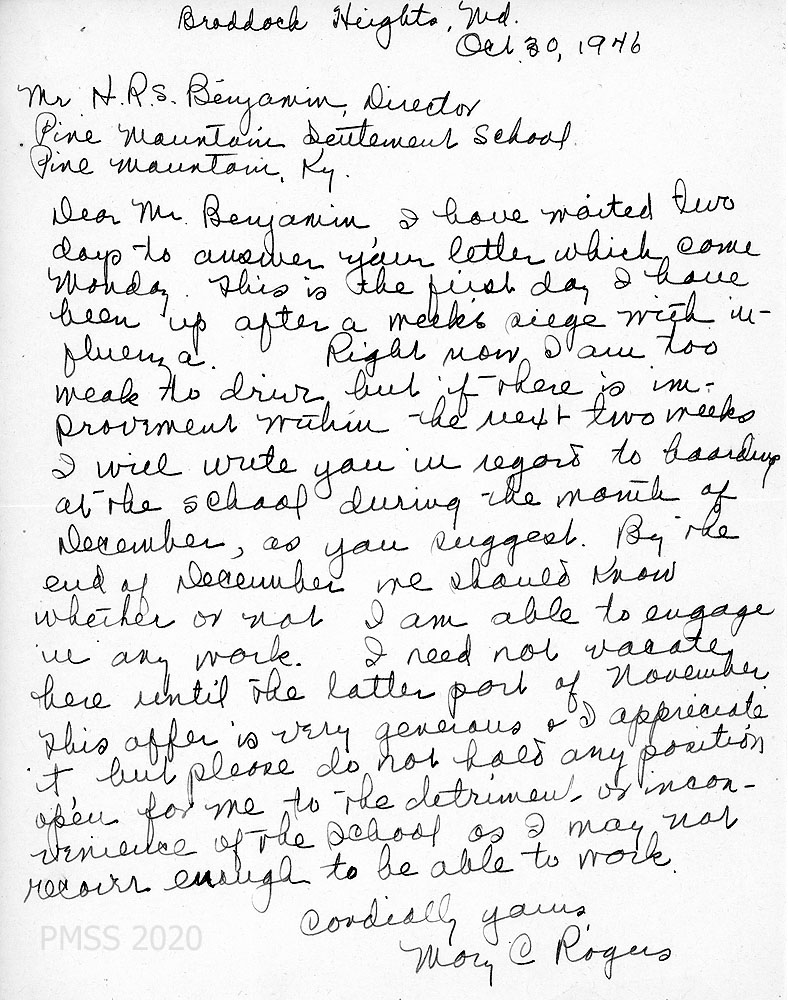 Braddock Heights, Md.
Oct. 30, 1946
Mr H.R.S. Benjamin, Director
Pine Mountain Settlement School.
Pine Mountain, Ky.
Dear Mr. Benjamin I have waited two
days to answer your letter which came
Monday. This is the first day I have
been up after a week's siege with in-
fluenza. Right now I am too
weak to drive but if there is im-
provement within the next two weeks
I will write you in regard to boarding
at the school during the month of
December, as you suggest. By the
end of December we should know
whether or not I am able to engage
in any work. I need not vacate
here until the latter part of November
This offer is very generous & I appreciate
it but please do not hold any position
open for me to the detriment or incon-
venience of the School as I may not
recover enough to be able to work.
Cordially yours,
Mary C Rogers
PMSS 2020